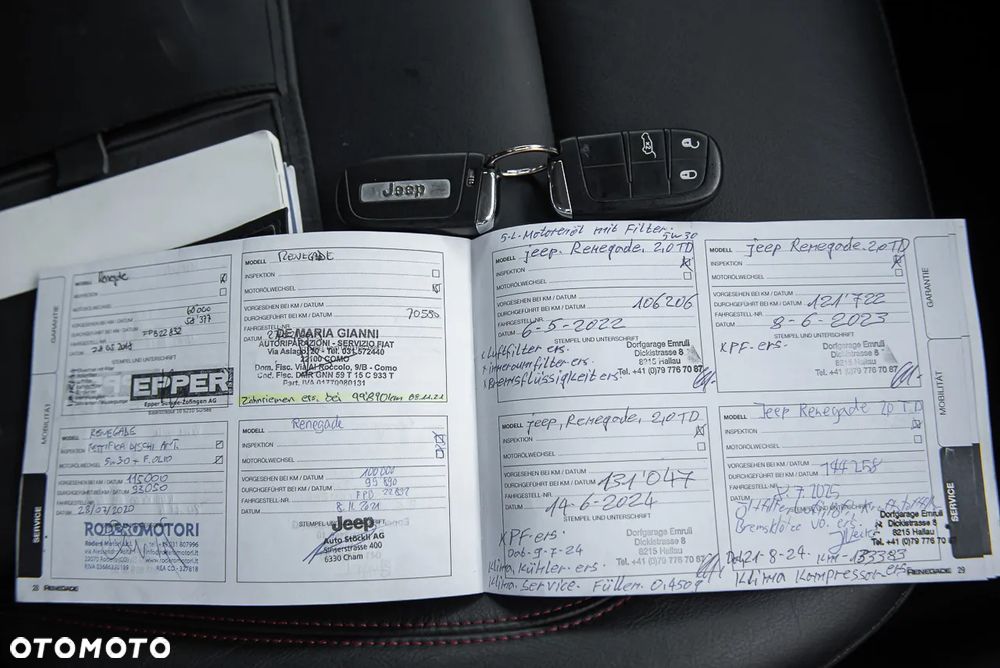 Jeep
5-L-Motorenöl mit Filter.
5w30
GARANTIE
MOBILITÄT
SERVICE
MODELL Renegade
INSPEKTION
MOTORÖLWECHSEL
60000
VORGESEHEN BEI KM / DATUM
58'377
DURCHGEFÜHRT BEI KM / DATUM
FAHRGESTELL-NR.
DATUM
STEMPEL UND UNTERSCHRIFT
EPPER
MODELL RENEGADE
INSPEKTION
MOTORÖLWECHSEL
VORGESEHEN BEI KM / DATUM
DURCHGEFÜHRT BEI KM / DATUM 70580
FAHRGESTELL-NR.
DATUM
DE MARIA GIANNI
AUTORIPARAZIONI - SERVIZIO FIAT
Via Asiago, 20 - Tel. 031.572440
22100 COMO
Dom. Fisc. Via Al Roccolo, 9/B - Como
Cod. Fisc. DMR GNN 59 T 15 C 933 T
Part. IVA 01770080131
Zahnriemen ers. bei 99'890km 08.11.21
MODELL RENEGADE
INSPEKTION
MOTORÖLWECHSEL 5W30 + F.OLIO
VORGESEHEN BEI KM / DATUM 115000
DURCHGEFÜHRT BEI KM / DATUM 93050
FAHRGESTELL-NR.
DATUM 28/07/2020
RODEROMOTORI
MODELL Renegade
INSPEKTION
MOTORÖLWECHSEL
VORGESEHEN BEI KM / DATUM 100000
DURCHGEFÜHRT BEI KM / DATUM 99890
FAHRGESTELL-NR.
DATUM 8.11.2021
STEMPEL UND UNTERSCHRIFT
Jeep
Auto Stöckli AG
Sinserstrasse 400
6330 Cham
28 RENEGADE
MODELL jeep. Renegade. 2,0 TD
INSPEKTION
MOTORÖLWECHSEL
VORGESEHEN BEI KM / DATUM
DURCHGEFÜHRT BEI KM / DATUM 106206
FAHRGESTELL-NR.
DATUM 6-5-2022
STEMPEL UND UNTERSCHRIFT
Luftfilter ers.
Innenraumfilter ers.
Bremsflüssigkeit ers.
Dorfgarage Emruli
Dickistrasse 8
8215 Hallau
Tel. +41 (0)79 776 70 87
MODELL jeep Renegade. 2,0 TD
INSPEKTION
MOTORÖLWECHSEL
VORGESEHEN BEI KM / DATUM
DURCHGEFÜHRT BEI KM / DATUM 121'722
FAHRGESTELL-NR.
DATUM 8-6-2023
STEMPEL UND UNTERSCHRIFT
KPF-ers.
Dorfgarage Emruli
Dickistrasse 8
8215 Hallau
Tel. +41 (0)79 776 70 87
MODELL jeep, Renegade. 2,0 TD.
INSPEKTION
MOTORÖLWECHSEL
VORGESEHEN BEI KM / DATUM
DURCHGEFÜHRT BEI KM / DATUM 131'047
FAHRGESTELL-NR.
DATUM 14-6-2024
STEMPEL UND UNTERSCHRIFT
KPF-ers.
Dat-9-7-24
Klima, Kühler-ers.
Klima. Service. Füllen 0,450g
Dorfgarage Emruli
Dickistrasse 8
8215 Hallau
Tel. +41 (0)79 776 70 87
MODELL Jeep Renegade 2,0 TD
INSPEKTION
MOTORÖLWECHSEL
VORGESEHEN BEI KM / DATUM
DURCHGEFÜHRT BEI KM / DATUM 144258
FAHRGESTELL-NR.
DATUM 7.2025
Bremsklötze VO. ers.
Dorfgarage Emruli
Dickistrasse 8
8215 Hallau
Tel. +41 (0)79 776 70 87
Dat 21-8-24. Km-133383
Klima Kompressor ers.
RENEGADE 29
GARANTIE
MOBILITÄT
SERVICE
OTOMOTO